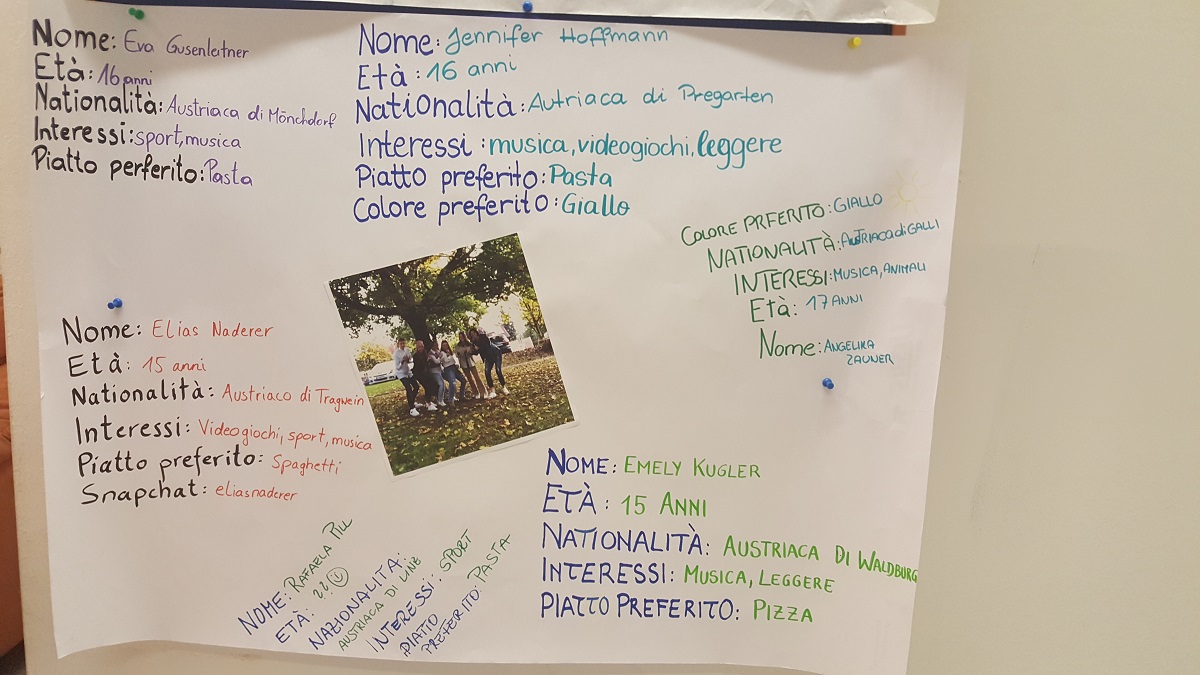 Nome: Eva Gusenleitner
Età: 16 anni
Nationalità: Austriaca di Mönchdorf
Interessi: sport, musica
Piatto perferito: Pasta
Nome: Jennifer Hoffmann
Età: 16 anni
Nationalità: Autriaca di Pregarten
Interessi: musica, videogiochi, leggere
Piatto preferito: Pasta
Colore preferito: Giallo
COLORE PRFERITO: GIALLO
NATIONALITÀ: AUSTRIACA di GALLI
INTERESSI: MUSICA, ANIMALI
Età: 17 ANNI
Nome: ANGELIKA
ZAUNER
Nome: Elias Naderer
Età: 15 anni
Nationalità: Austriaco di Tragwein
Interessi: Videogiochi, sport, musica
Piatto preferito: Spaghetti
Snapchat: eliasnaderer
NOME: RAFAELA PILL
ETÀ: ??
NAZIONALITÀ:
AUSTRIACA DI LINZ
INTERESSI: SPORT
PIATTO
PREFERITO: PASTA
NOME: EMELY KUGLER
ETÀ: 15 ANNI
NATIONALITÀ: AUSTRIACA DI WALDBURG
INTERESSI: MUSICA, LEGGERE
PIATTO PREFERITO: PIZZA